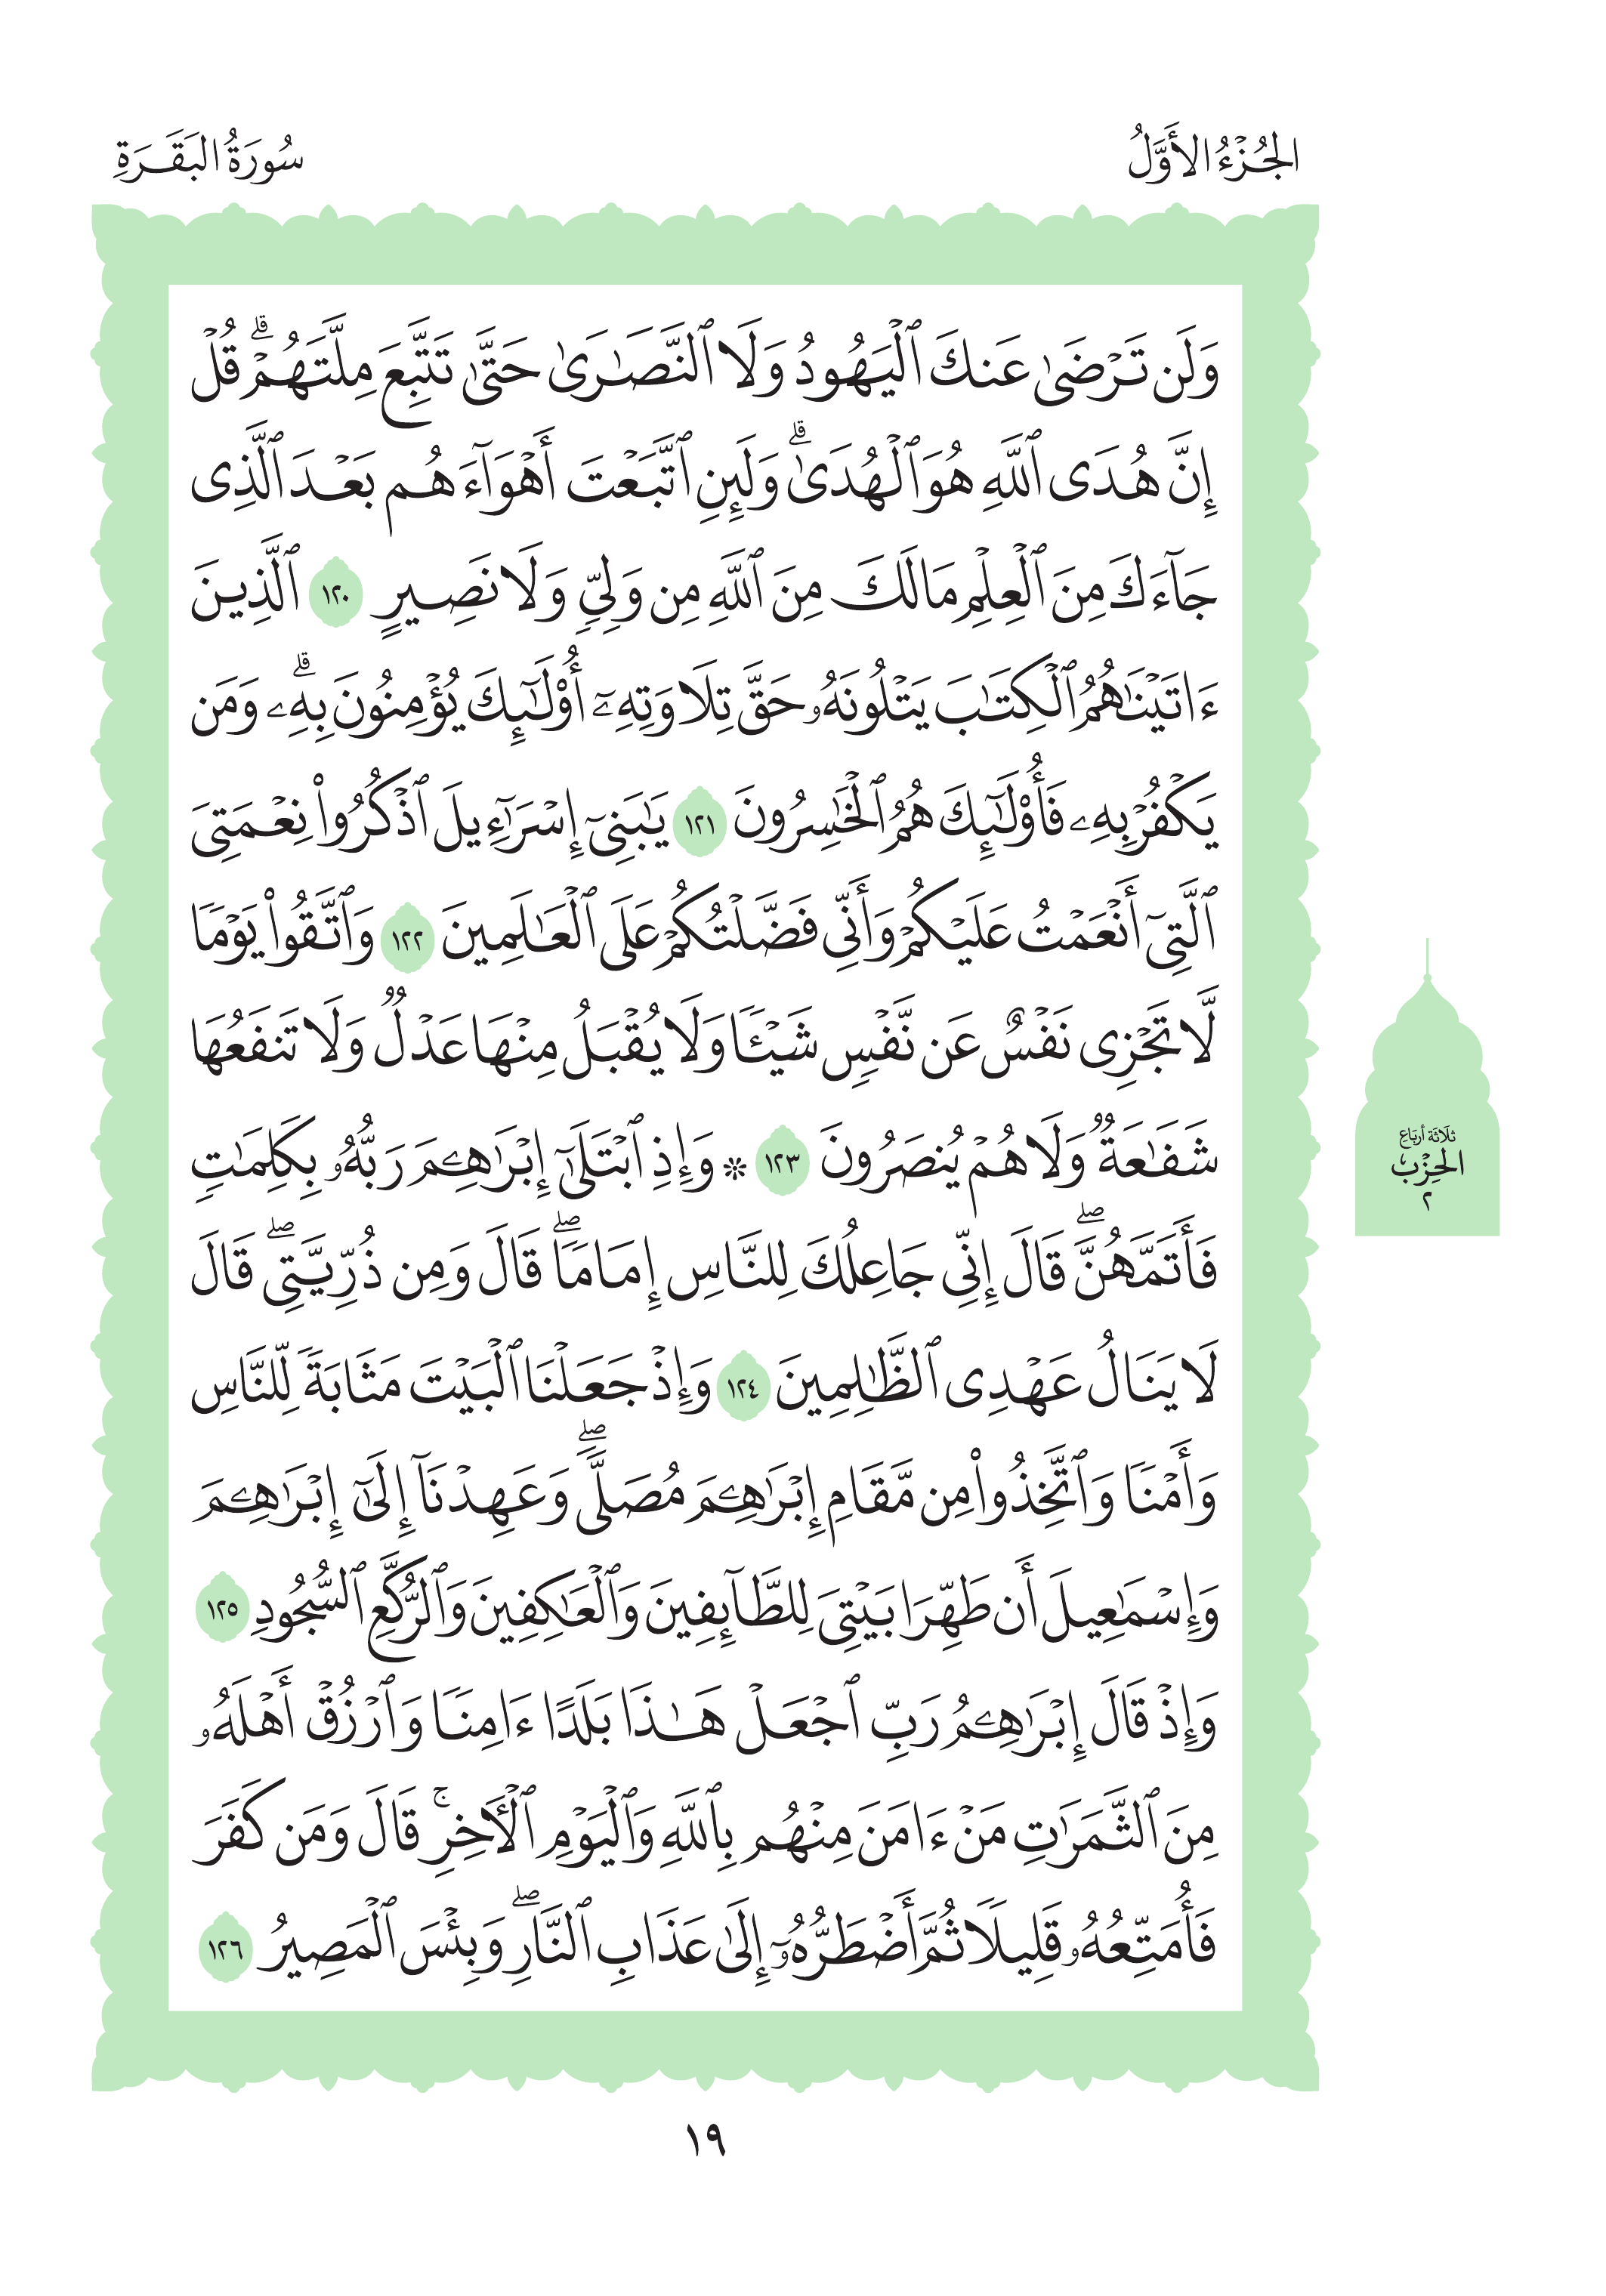 الجُزْءُ الأَوَّلُ
سُورَةُ البَقَرَةِ
وَلَن تَرۡضَىٰ عَنكَ ٱلۡيَهُودُ وَلَا ٱلنَّصَٰرَىٰ حَتَّىٰ تَتَّبِعَ مِلَّتَهُمۡۗ قُلۡ
إِنَّ هُدَى ٱللَّهِ هُوَ ٱلۡهُدَىٰۗ وَلَئِنِ ٱتَّبَعۡتَ أَهۡوَآءَهُم بَعۡدَ ٱلَّذِي
جَآءَكَ مِنَ ٱلۡعِلۡمِ مَا لَكَ مِنَ ٱللَّهِ مِن وَلِيّٖ وَلَا نَصِيرٍ ١٢٠ ٱلَّذِينَ
ءَاتَيۡنَٰهُمُ ٱلۡكِتَٰبَ يَتۡلُونَهُۥ حَقَّ تِلَاوَتِهِۦٓ أُوْلَٰٓئِكَ يُؤۡمِنُونَ بِهِۦۗ وَمَن
يَكۡفُرۡ بِهِۦ فَأُوْلَٰٓئِكَ هُمُ ٱلۡخَٰسِرُونَ ١٢١ يَٰبَنِيٓ إِسۡرَٰٓءِيلَ ٱذۡكُرُواْ نِعۡمَتِيَ
ٱلَّتِيٓ أَنۡعَمۡتُ عَلَيۡكُمۡ وَأَنِّي فَضَّلۡتُكُمۡ عَلَى ٱلۡعَٰلَمِينَ ١٢٢ وَٱتَّقُواْ يَوۡمٗا
لَّا تَجۡزِي نَفۡسٌ عَن نَّفۡسٖ شَيۡـٔٗا وَلَا يُقۡبَلُ مِنۡهَا عَدۡلٞ وَلَا تَنفَعُهَا
شَفَٰعَةٞ وَلَا هُمۡ يُنصَرُونَ ١٢٣ ۞ وَإِذِ ٱبۡتَلَىٰٓ إِبۡرَٰهِـۧمَ رَبُّهُۥ بِكَلِمَٰتٖ
فَأَتَمَّهُنَّۖ قَالَ إِنِّي جَاعِلُكَ لِلنَّاسِ إِمَامٗاۖ قَالَ وَمِن ذُرِّيَّتِيۖ قَالَ
لَا يَنَالُ عَهۡدِي ٱلظَّٰلِمِينَ ١٢٤ وَإِذۡ جَعَلۡنَا ٱلۡبَيۡتَ مَثَابَةٗ لِّلنَّاسِ
وَأَمۡنٗا وَٱتَّخِذُواْ مِن مَّقَامِ إِبۡرَٰهِـۧمَ مُصَلّٗىۖ وَعَهِدۡنَآ إِلَىٰٓ إِبۡرَٰهِـۧمَ
وَإِسۡمَٰعِيلَ أَن طَهِّرَا بَيۡتِيَ لِلطَّآئِفِينَ وَٱلۡعَٰكِفِينَ وَٱلرُّكَّعِ ٱلسُّجُودِ ١٢٥
وَإِذۡ قَالَ إِبۡرَٰهِـۧمُ رَبِّ ٱجۡعَلۡ هَٰذَا بَلَدًا ءَامِنٗا وَٱرۡزُقۡ أَهۡلَهُۥ
مِنَ ٱلثَّمَرَٰتِ مَنۡ ءَامَنَ مِنۡهُم بِٱللَّهِ وَٱلۡيَوۡمِ ٱلۡأٓخِرِۚ قَالَ وَمَن كَفَرَ
فَأُمَتِّعُهُۥ قَلِيلٗا ثُمَّ أَضۡطَرُّهُۥٓ إِلَىٰ عَذَابِ ٱلنَّارِۖ وَبِئۡسَ ٱلۡمَصِيرُ ١٢٦
ثلاثة أرباع
الحِزْب
٢
١٩